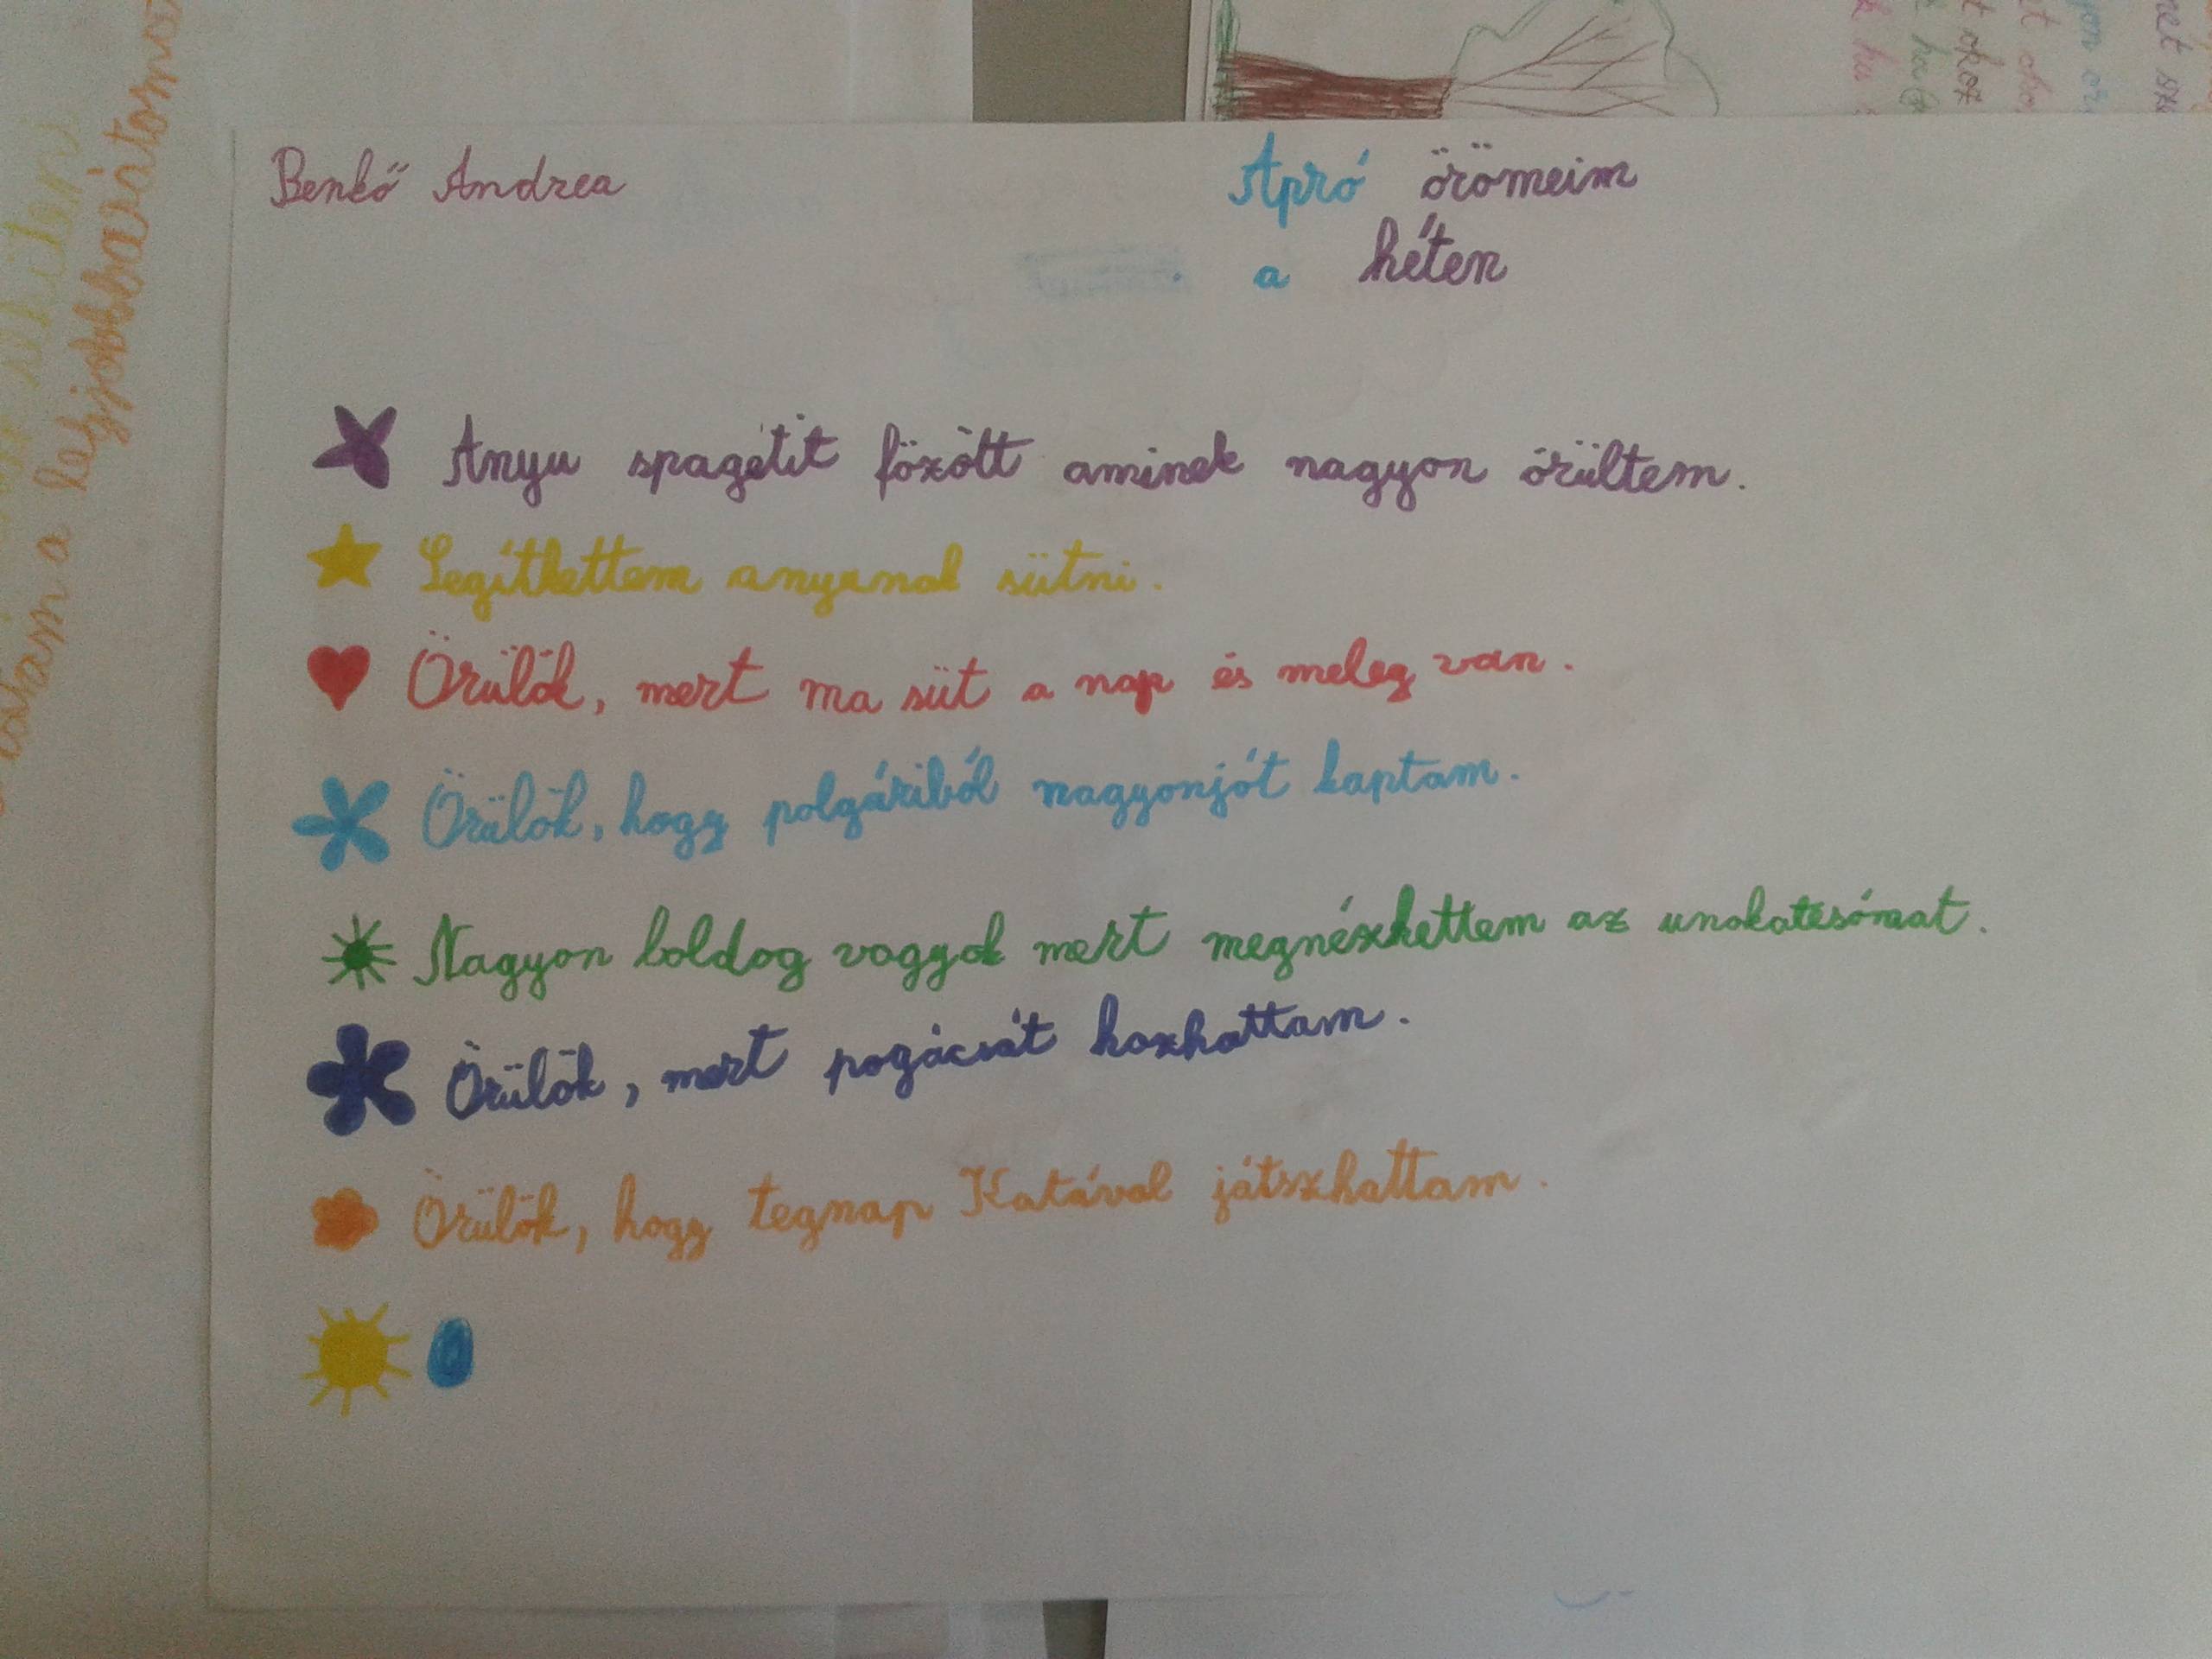 Benkő Andrea
Apró örömeim
a héten
Anyu spagétit főzött aminek nagyon örültem.
Segíthettem anyunak sütni.
Örülök, mert ma süt a nap és meleg van.
Örülök, hogy polgáriból nagyonjót kaptam.
Nagyon boldog vagyok mert megnézhettem az unokatesómat.
Örülök, mert pogácsát hozhattam.
Örülök, hogy tegnap Katával játszhattam.
a legjobb barátom